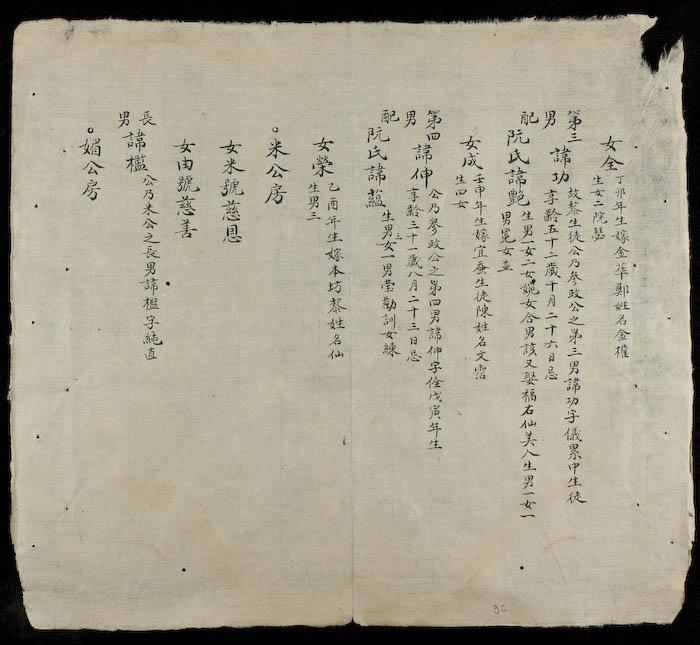 女全 丁卯年生嫁金華鄭姓名金權
生女二院瑟
第三男 諱功 故黎生徒公乃參政公之第三男諱功字儀累中生徒
享齡五十二歲十月二十六日忌
配阮氏諱艷 生男一女二女婉女合男該又娶福右仙美人生男一女一
男冕女並
女成 壬申年生嫁宜蚕生徒陳姓名文霑
生四女
第四男 諱伸 公乃參政公之第四男諱伸字佺戊寅年生
享齡三十一歲八月二十三日忌
配阮氏諱蘊 生男三女一男瑩勸訓女練
女榮 乙酉年生嫁本坊黎姓名仙
生男三
米公房
女米號慈恩
女由號慈善
長男 諱檻 公乃米公之長男諱檻字純直
媚公房
36